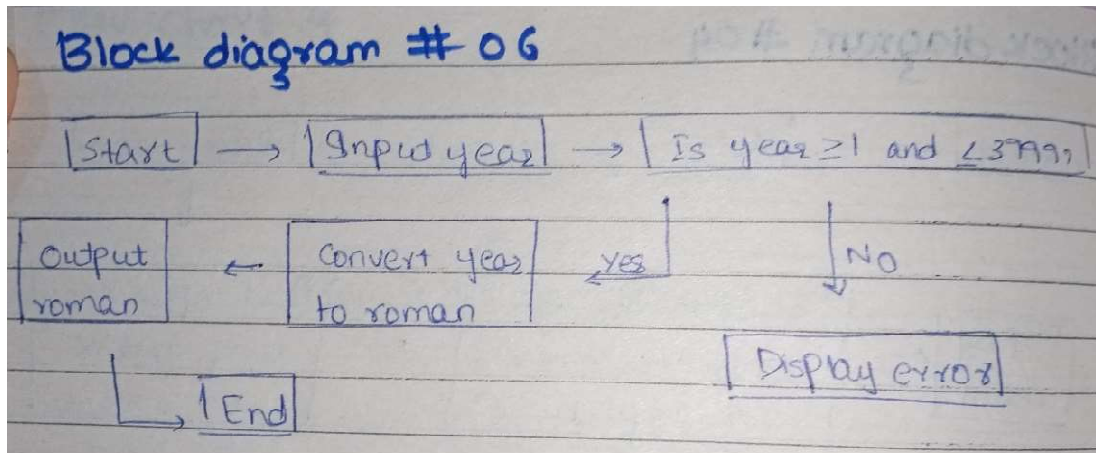 Block diagram # 06
Start → Input year → Is year ≥1 and ≤3999?
Output ← Convert year yes NO
roman to roman
Display error
End